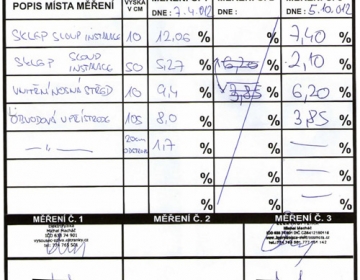 POPIS MÍSTA MĚŘENÍ VÝŠKA V CM DNE: 7.4.012 DNE: DNE: 5.10.012
SKLEP SLOUP INSTALACE 10 12,06 % % 7,40 %
SKLEP SLOUP INSTALACE 50 5,27 % 6,20 % 2,10 %
VNITŘNÍ NOSNÁ STŘED 10 9,4 % 3,85 % 6,20 %
OBVODOVÁ U PŘÍSTROJE 105 8,0 % % 3,85 %
–"– 20cm 1,7 % % — %
% % — %
% % — %
MĚŘENÍ Č. 1 MĚŘENÍ Č. 2 MĚŘENÍ Č. 3